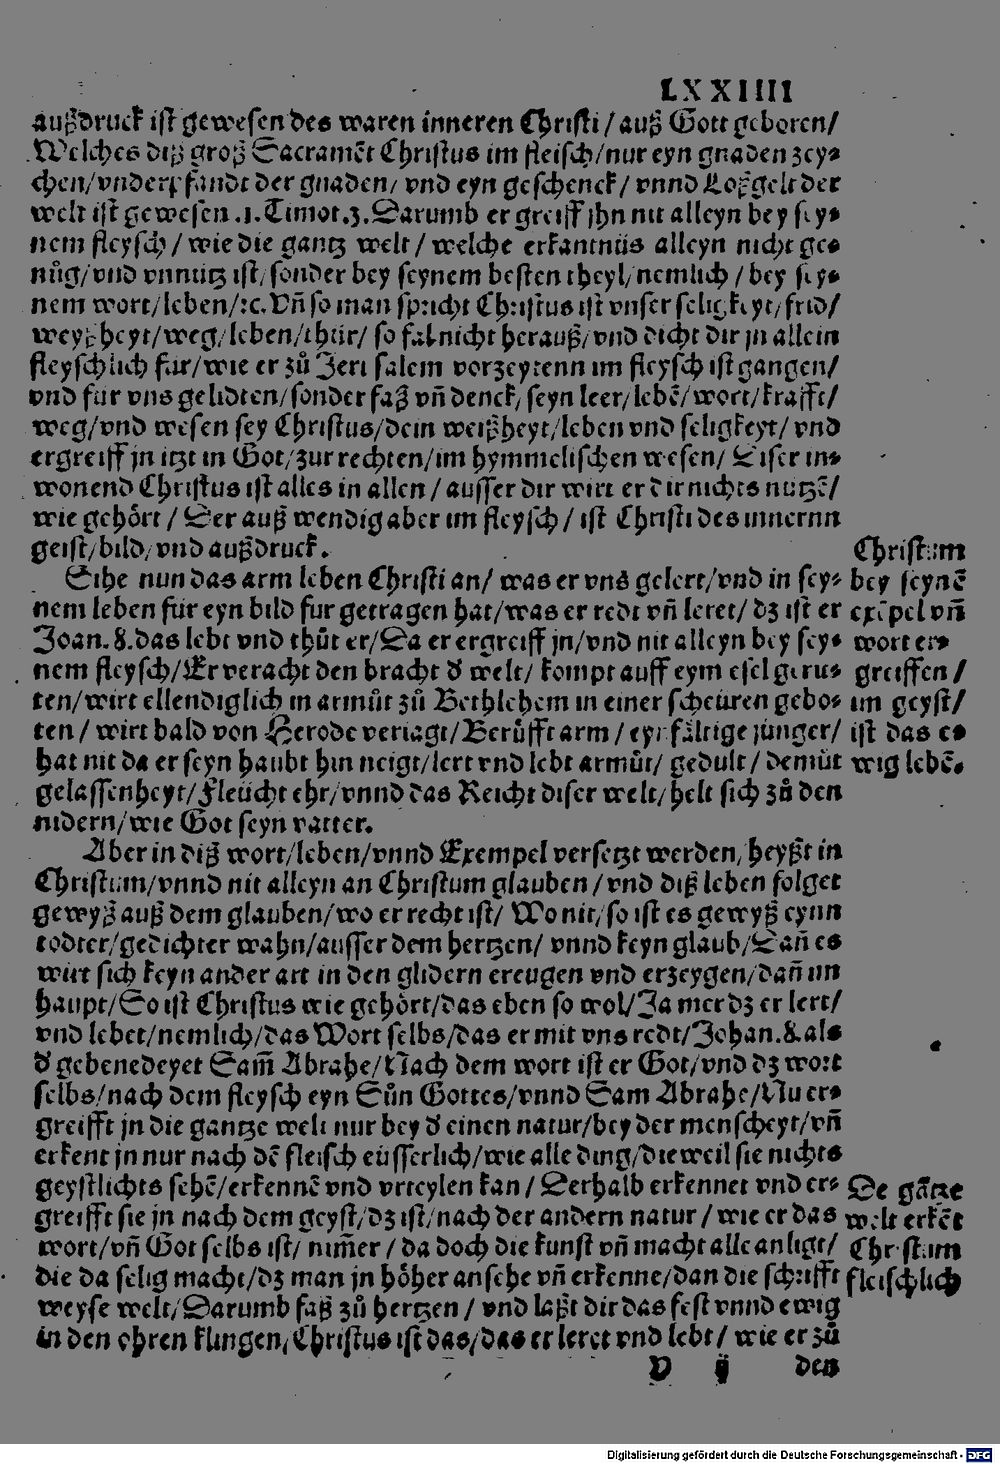 LXXIIII
außdruck ist gewesen des waren inneren Christi / auß Gott geboren/
Welches diß groß Sacramēt Christus im fleisch/nur eyn gnaden zey⸗
chen/vnderpfandt der gnaden/ vnd eyn geschenck/ vnnd Loßgelt der
welt ist gewesen .1. Timot.3. Darumb er greiff jhn nit alleyn bey sey⸗
nem fleysch / wie die gantz welt / welche erkantnüs alleyn nicht ge⸗
nůg/vnd vnnütz ist/sonder bey seynem besten theyl/nemlich / bey sey⸗
nem wort/leben/ꝛc. Vñ so man spricht Christus ist vnser seligkeyt/frid/
weyßheyt/weg/leben/thür/ so fal nicht herauß/vnd dicht dir jn allein
fleyschlich für/wie er zů Jeru salem vorzeytenn im fleysch ist gangen/
vnd für vns gelidten/sonder faß vñ denck/ seyn leer/lebē/wort/krafft/
weg/vnd wesen sey Christus/dein weißheyt/leben vnd seligkeyt/ vnd
ergreiff jn itzt in Got/zur rechten/im hymmelischen wesen/ Diser in⸗
wonend Christus ist alles in allen / ausser dir wirt er dir nichts nutzē/
wie gehört / Der auß wendig aber im fleysch / ist Christi des innernn
geist/bild/vnd außdruck.
Sihe nun das arm leben Christi an/ was er vns gelert/vnd in sey⸗
nem leben für eyn bild fur getragen hat/was er redt vñ leret/ dz ist er
Joan.8.das lebt vnd thůt er/Da er ergreiff jn/vnd nit alleyn bey sey⸗
nem fleysch/Er veracht den bracht d̕ welt/ kompt auff eym esel geru⸗
ten/wirt ellendiglich in armůt zů Bethlehem in einer scheüren gebo⸗
ren / wirt bald von Herode veriagt/Berüfft arm / eynfältige jünger/
hat nit da er seyn haubt hin neigt/lert vnd lebt armůt/ gedult / demůt
gelassenheyt/Fleücht ehr/vnnd das Reich diser welt/helt sich zů den
nidern/wie Got seyn vatter.
Christum
bey seynē
exēpel vñ
wort er⸗
greiffen /
im geyst/
ist das e⸗
wig lebē.
Aber in diß wort/leben/vnnd Exempel versetzt werden/heyßt in
Christum/vnnd nit alleyn an Christum glauben / vnd diß leben folget
gewyß auß dem glauben/wo er recht ist/ Wo nit/so ist es gewyß eynn
todter/gedichter wahn/ausser dem hertzen/ vnnd keyn glaub/Dañ es
wirt sich keyn ander art in den glidern ereugen vnd erzeygen/dañ im
haupt/So ist Christus wie gehört/das eben so wol/Ja mer dz er lert/
vnd lebet/nemlich/das Wort selbs/das er mit vns redt/Johan.8.als
d̕ gebenedeyet Sam̄ Abrahe/Nach dem wort ist er Got/vnd dz wort
selbs/nach dem fleysch eyn Sůn Gottes/vnnd Sam Abrahe/Nu er⸗
greifft jn die gantze welt nur bey d̕ einen natur/bey der menscheyt/vñ
erkent jn nur nach dē fleisch eüsserlich/wie alle ding/dieweil sie nichts
geystlichts sehē/erkennē vnd vrteylen kan / Derhalb erkennet vnd er⸗
greifft sie jn nach dem geyst/dz ist/nach der andern natur / wie er das
wort/vñ Got selbs ist/ nim̄er / da doch die kunst vñ macht alle anligt/
die da selig macht/dz man jn höher ansehe vñ erkenne/dan die schrifft
weyse welt/Darumb faß zů hertzen / vnd laßt dir das fest vnnd ewig
in den ohren klingen/Christus ist das/das er leret vnd lebt/ wie er zů
De gātze
welt erkēt
Christum
fleischlich
V ij den
Digitalisierung gefördert durch die Deutsche Forschungsgemeinschaft - DFG